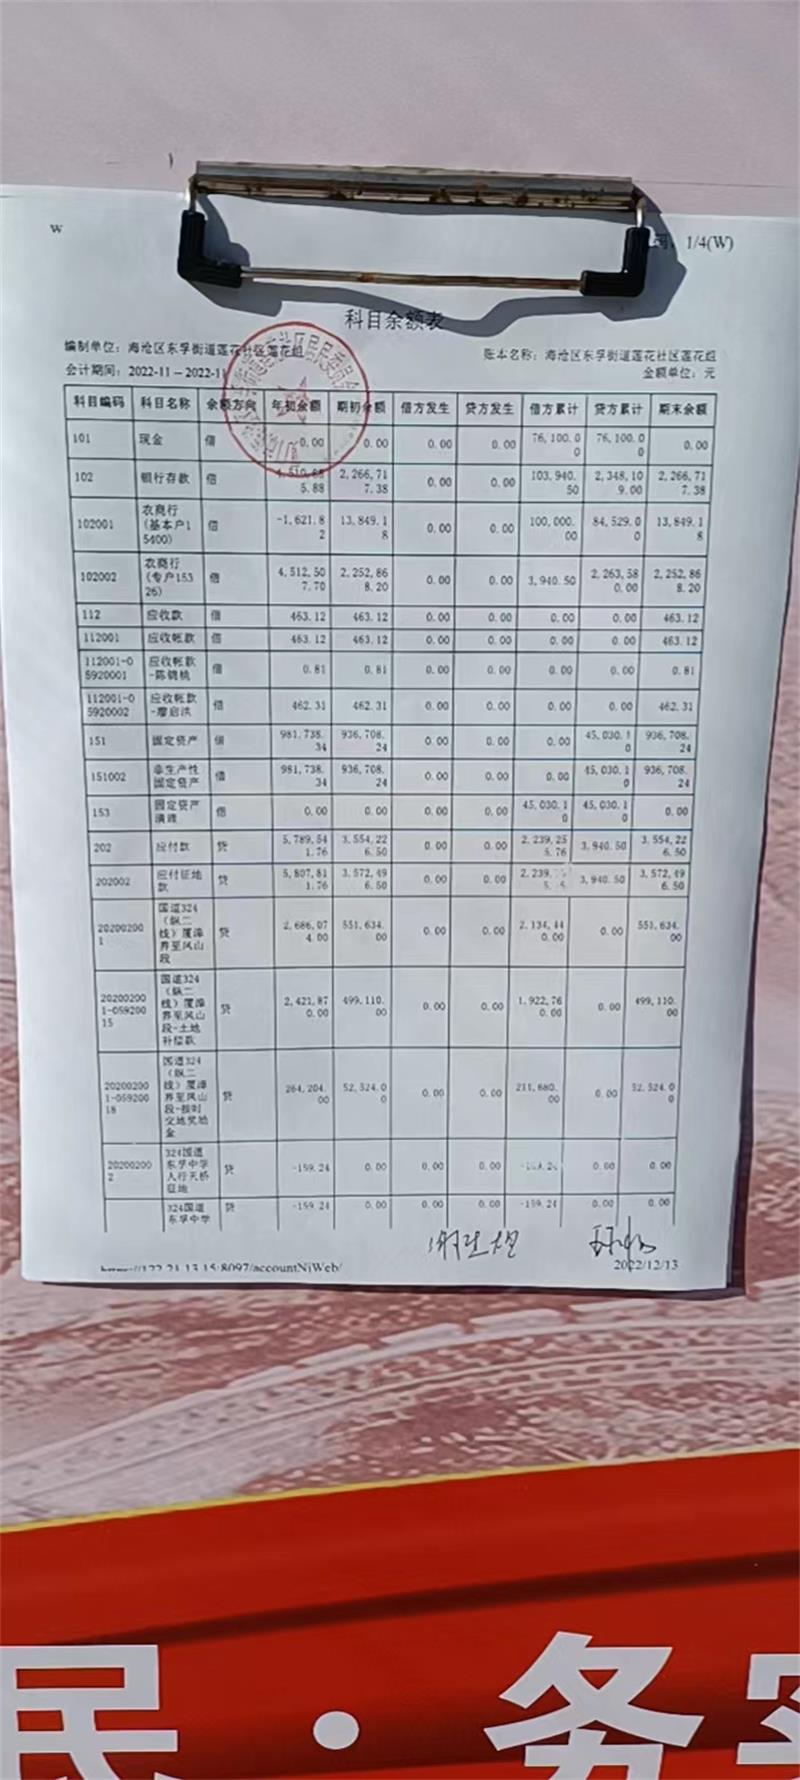 W
1/4(W)
科目余额表
编制单位：海沧区东孚街道莲花社区莲花组 账本名称：海沧区东孚街道莲花社区莲花组
会计期间：2022-11－2022-11 金额单位：元
科目编码 科目名称 余额方向 年初余额 期初余额 借方发生 贷方发生 借方累计 贷方累计 期末余额
101 现金 借 0.00 0.00 0.00 0.00 76,100.00 76,100.00 0.00
102 银行存款 借 2,266,717.38 0.00 0.00 103,940.50 2,348,109.00 2,266,717.38
102001 农商行(基本户15400) 借 -1,621.82 13,849.18 0.00 0.00 100,000.00 84,529.00 13,849.18
102002 农商行(专户15326) 借 4,512,507.70 2,252,868.20 0.00 0.00 3,940.50 2,263,580.00 2,252,868.20
112 应收款 借 463.12 463.12 0.00 0.00 0.00 0.00 463.12
112001 应收帐款 借 463.12 463.12 0.00 0.00 0.00 0.00 463.12
112001-05920001 应收帐款-陈锦桃 借 0.81 0.81 0.00 0.00 0.00 0.00 0.81
112001-05920002 应收帐款-廖启洪 借 462.31 462.31 0.00 0.00 0.00 0.00 462.31
151 固定资产 借 981,738.34 936,708.24 0.00 0.00 0.00 45,030.10 936,708.24
151002 非生产性固定资产 借 981,738.34 936,708.24 0.00 0.00 0.00 45,030.10 936,708.24
153 固定资产清理 借 0.00 0.00 0.00 0.00 45,030.10 45,030.10 0.00
202 应付款 贷 5,789,541.76 3,554,226.50 0.00 0.00 2,239,255.76 3,940.50 3,554,226.50
202002 应付征地款 贷 5,807,811.76 3,572,496.50 0.00 0.00 3,940.50 3,572,496.50
202002001 国道324（纵二线）厦漳界至凤山段 贷 2,686,074.00 551,634.00 0.00 0.00 2,134,440.00 0.00 551,634.00
202002001-05920015 国道324（纵二线）厦漳界至凤山段-土地补偿款 贷 2,421,870.00 499,110.00 0.00 0.00 1,922,760.00 0.00 499,110.00
202002001-05920018 国道324（纵二线）厦漳界至凤山段-按时交地奖励金 贷 264,204.00 52,524.00 0.00 0.00 211,680.00 0.00 52,524.00
202002002 324国道东孚中学人行天桥征地 贷 -159.24 0.00 0.00 0.00 0.00 0.00
324国道东孚中学 贷 -159.24 0.00 0.00 0.00 -159.24 0.00 0.00
2022/12/13
民·务